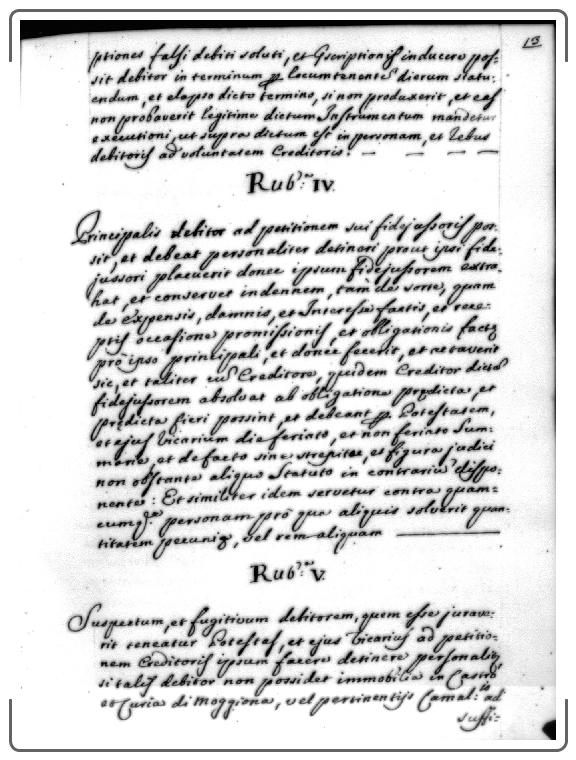 13
ptiones falsi debiti soluti, et Gscriptionis inducere pos=
sit debitor in terminum p locumtenente dierum statu:
endum, et elapso dicto termino, si non produxerit, et eas
non probaverit legitime dictum Instrumentum mandetur
executioni, ut supra dictum est in personam, et rebus
debitoris ad voluntatem Creditoris.
Rub.ca IV.
Principalis debitor ad petitionem sui fidejussoris pos:
sit, et debeat personaliter detineri prout ipsi fide:
jussori placuerit donec ipsum fidejussorem extra:
hat, et conservet indennem, tam de sorte, quam
de expensis, damnis, et Interesse factis, et rece:
ptis occasione promissionis, et obligationis factę
pro ipso principali, et donec fecerit, et actaverit
sic, et taliter cũ Creditore, quidem Creditor dictũ
fidejussorem absolvat ab obligatione prędicta, et
prędicta fieri possint, et debeant p Potestatem,
et ejus Vicarium die feriato, et non feriato Sum:
marie, et de facto sine strepitu, et figura judici
non obstante aliquo Statuto in contrariũ dispo:
nente: Et similiter idem servetur contra quam=
cumq; personam pro qua aliquis solverit quan:
titatem pecunię, vel rem aliquam
Rub.ca V.
Suspectum, et fugitivum debitorem, quem esse jurave:
rit teneatur Potestas, et ejus Vicarius ad petitio:
nem Creditoris ipsum facere detinere personaliter,
si talis debitor non possidet immobilia in Castro
et Curia di Moggiona, vel pertinentijs Camal:is ad
suffi=